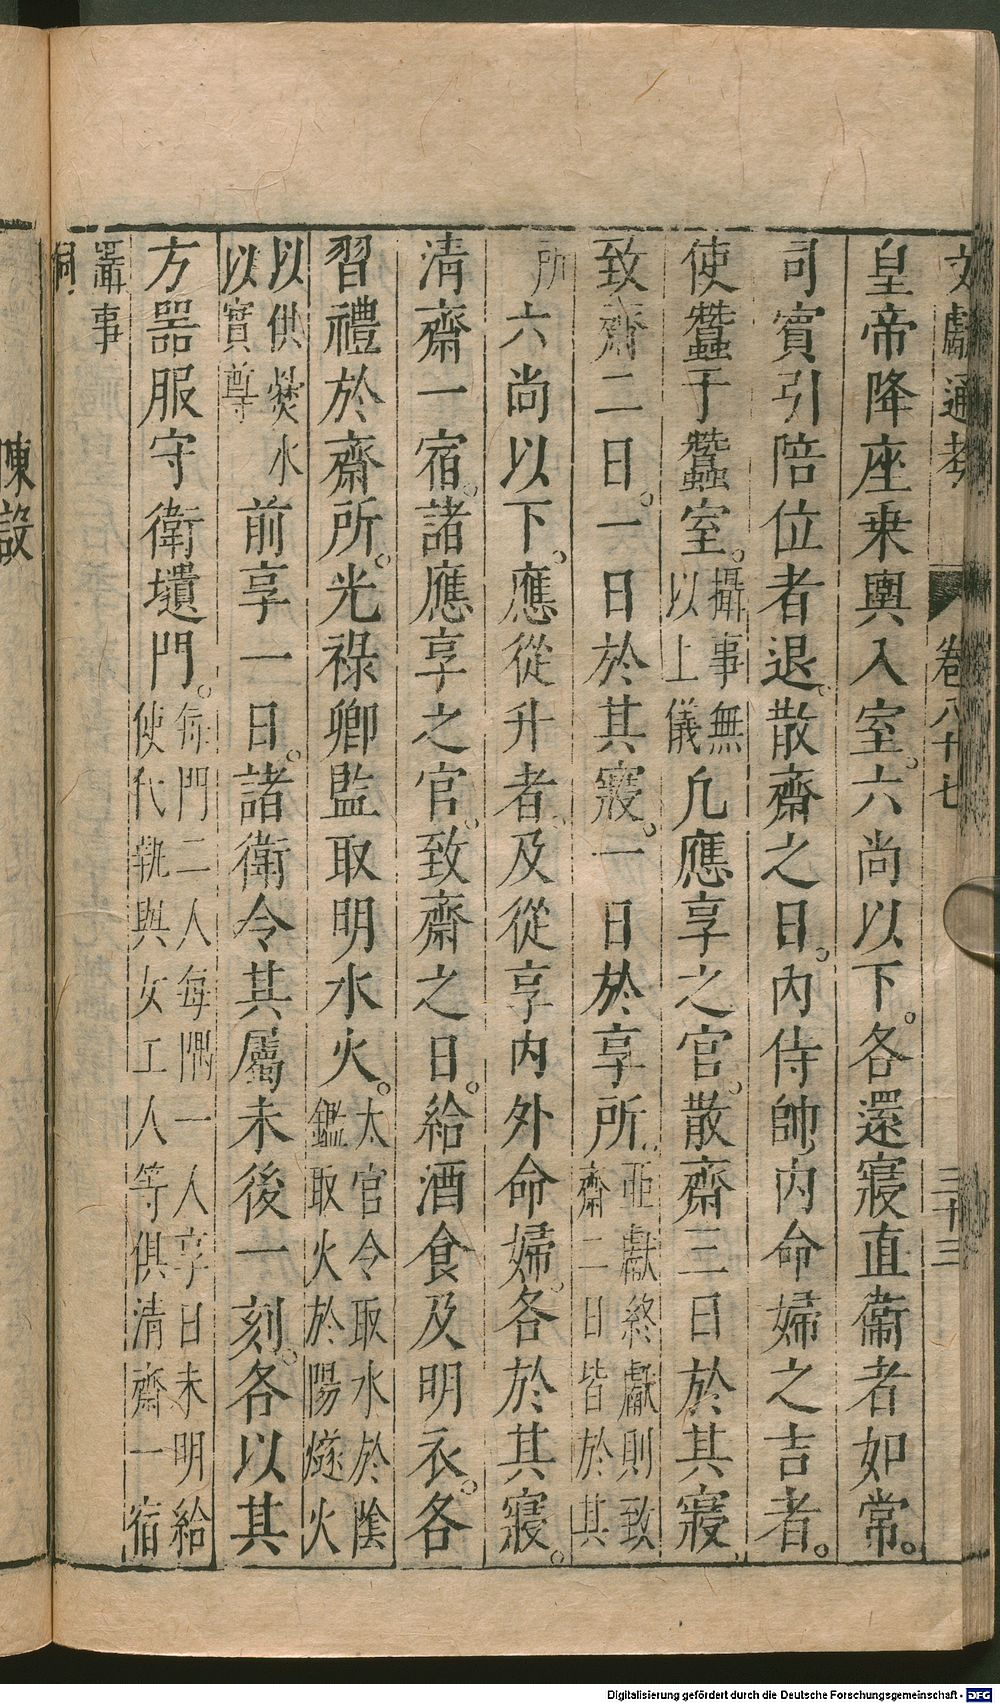 文獻通考 卷八十七 三十三
皇帝降座乗輿入室。六尚以下。各還寢直衞者如常。
司賓引陪位者退。散齋之日。内侍帥内命婦之吉者。
使蠶于蠶室。攝事無以上儀凡應享之官。散齋三日於其寢、
致齋二日。一日於其寢。一日於享所、亞獻終獻則致齋二日皆於其
所六尚以下。應從升者、及從享内外命婦。各於其寢。
清齋一宿。諸應享之官。致齋之日。給酒食及明衣。各
習禮於齋所。光祿卿監取明水火。太官令取水於陰鑑取火於陽燧火
以供爨水以實尊前享一日。諸衛令其屬未後一刻。各以其
方器服守衛壝門。每門二人每隅一人享日未明給使代執與女工人等俱清齋一宿
攝事同。
陳設
Digitalisierung gefördert durch die Deutsche Forschungsgemeinschaft - DFG